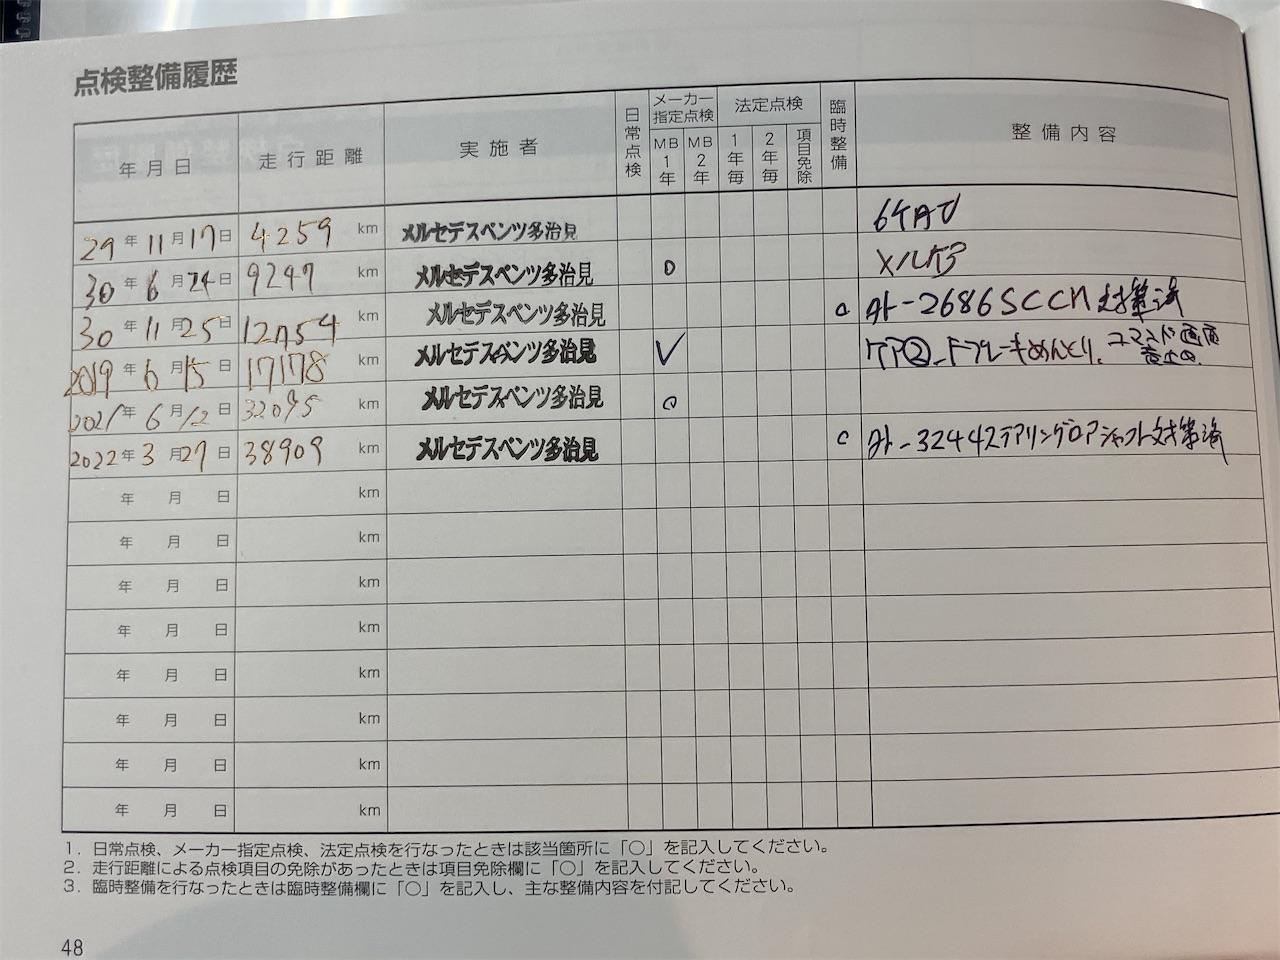 点検整備履歴
年月日 走行距離 実施者 日常点検 メーカー指定点検 法定点検 臨時整備 整備内容
MB1年 MB2年 1年毎 2年毎 項目免除
29年 11月 17日 4259 km メルセデスベンツ多治見
30年 6月 24日 9247 km メルセデスベンツ多治見 ○ メルケア
30年 11月 25日 km メルセデスベンツ多治見 ○ 外-2686 SCCM 対策済
2019年 6月 15日 17178 km メルセデスベンツ多治見 ✓ ケア②
2021年 6月 12日 32095 km メルセデスベンツ多治見 ○
2022年 3月 27日 38909 km メルセデスベンツ多治見 ○ 外-3244ステアリングロアシャフト対策済
年 月 日 km
年 月 日 km
年 月 日 km
年 月 日 km
年 月 日 km
年 月 日 km
年 月 日 km
年 月 日 km
1. 日常点検、メーカー指定点検、法定点検を行なったときは該当箇所に「○」を記入してください。
2. 走行距離による点検項目の免除があったときは項目免除欄に「○」を記入してください。
3. 臨時整備を行なったときは臨時整備欄に「○」を記入し、主な整備内容を付記してください。
48